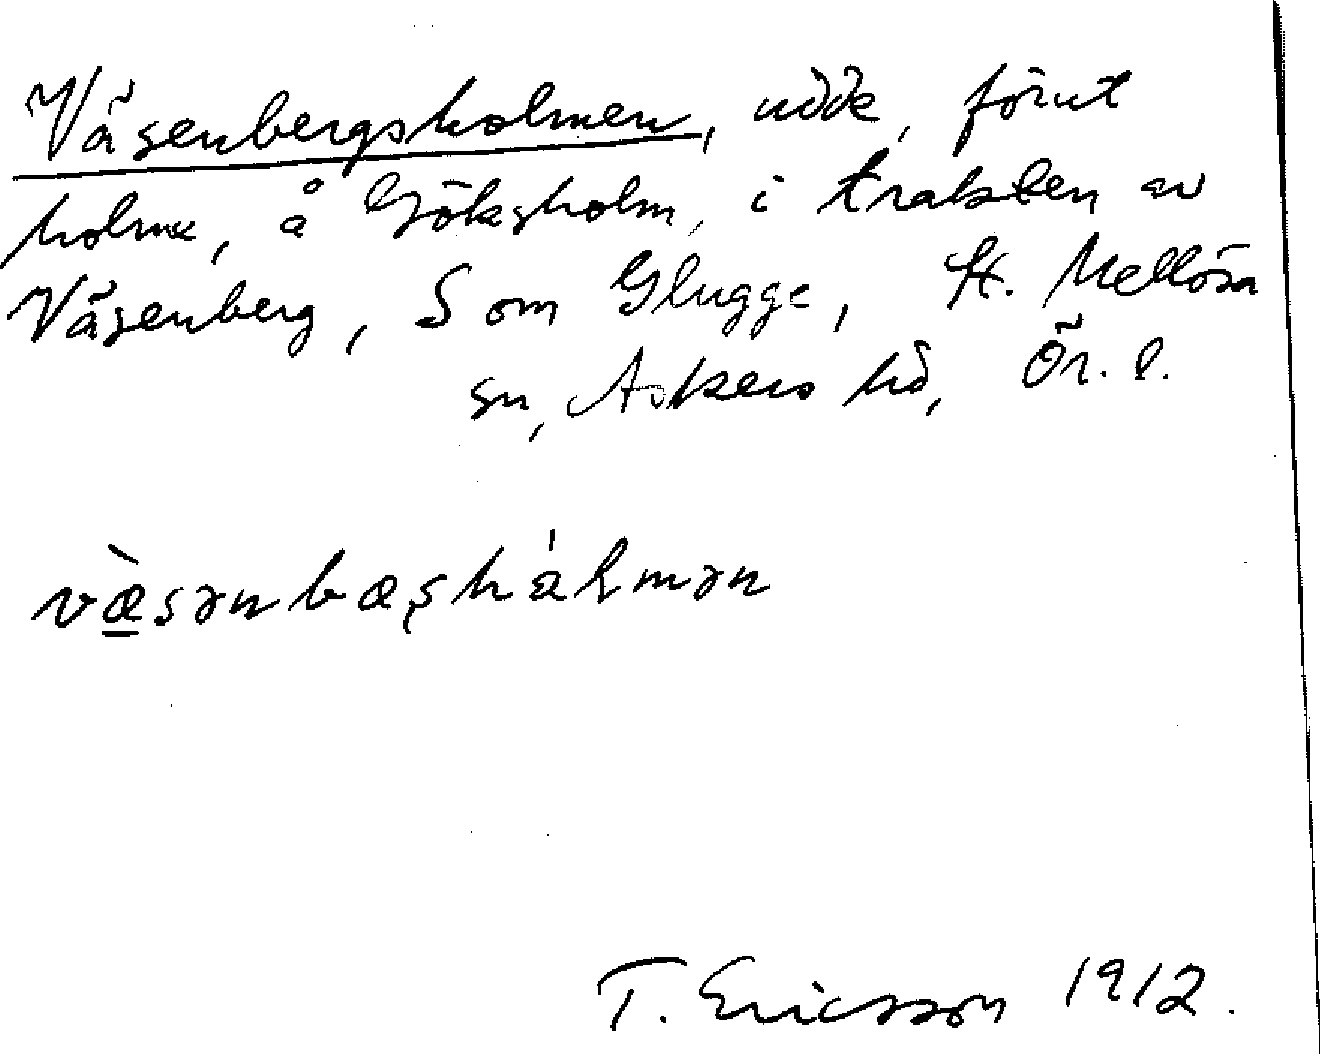 Väsenbergsholmen, udde, förut
holme, å Göksholm, i trakten av
Väsenberg, S om Glugge, St. Mellösa
sn, Askers hd, Ör. l.
væ̀sənbæʂhålmən
T. Ericsson 1912.